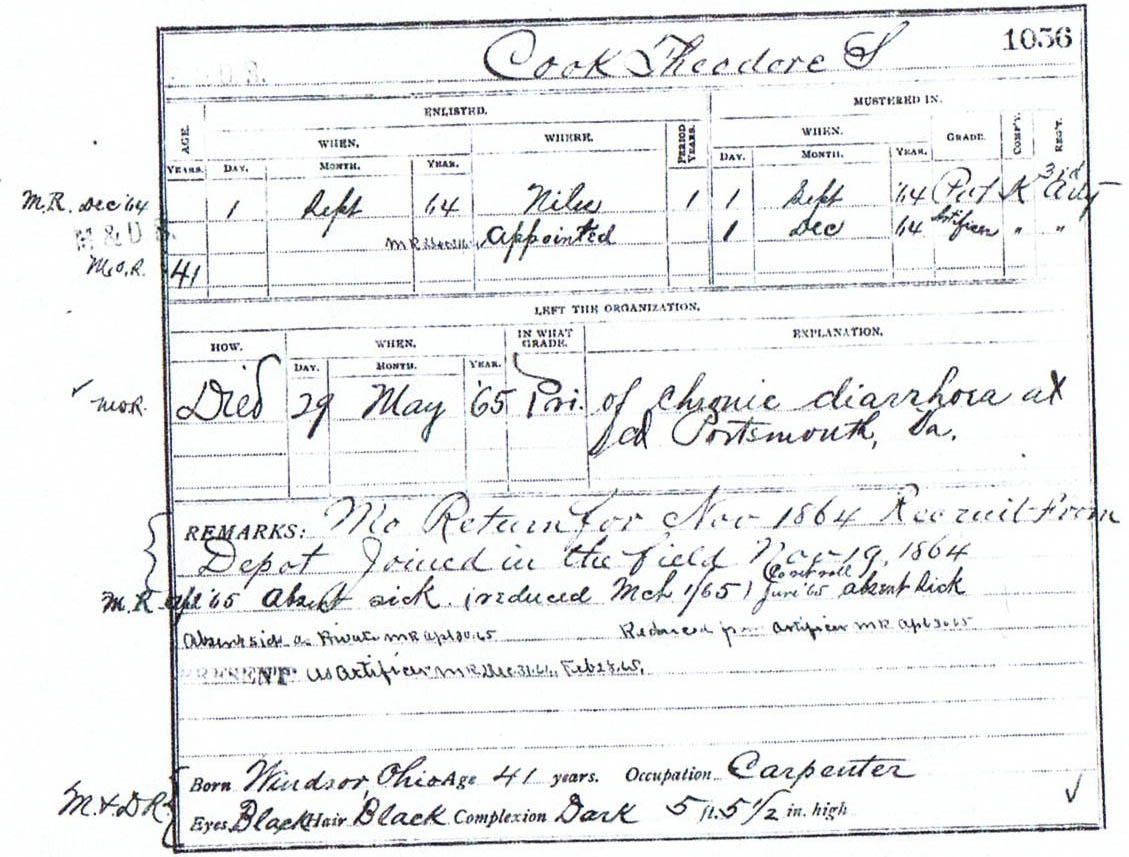 Cook Theodore S 1056
ENLISTED. MUSTERED IN.
AGE. WHEN. WHERE. PERIOD YEARS. WHEN. GRADE. COMP'Y. REG'T.
YEARS. DAY. MONTH. YEAR. DAY. MONTH. YEAR.
M.R. Dec '64 1 Sept '64 Niles 1 1 Sept '64 Pvt K 3rd Arty
M & D R. Appointed 1 Dec '64 Artificer " "
M.O.R. 41
LEFT THE ORGANIZATION.
HOW. WHEN. IN WHAT GRADE. EXPLANATION.
DAY. MONTH. YEAR.
MOR. Died 29 May '65 Pri. of chronic diarrhoea at
Portsmouth, Va.
REMARKS: Mo Return for Nov 1864 Recruit From
Depot Joined in the field Nov 19, 1864
M.R. Apl '65 absent sick (reduced Mch 1/65) June '65 absent sick
Absent sick as Private MR Apl 30.65 Reduced from Artificer MR Apl 30.65
PRESENT as Artificer MR Dec.31.64, Feb 28.65.
Born Windsor, Ohio Age 41 years. Occupation Carpenter
M. & D R. Eyes Black Hair Black Complexion Dark 5 ft. 5 1/2 in. high